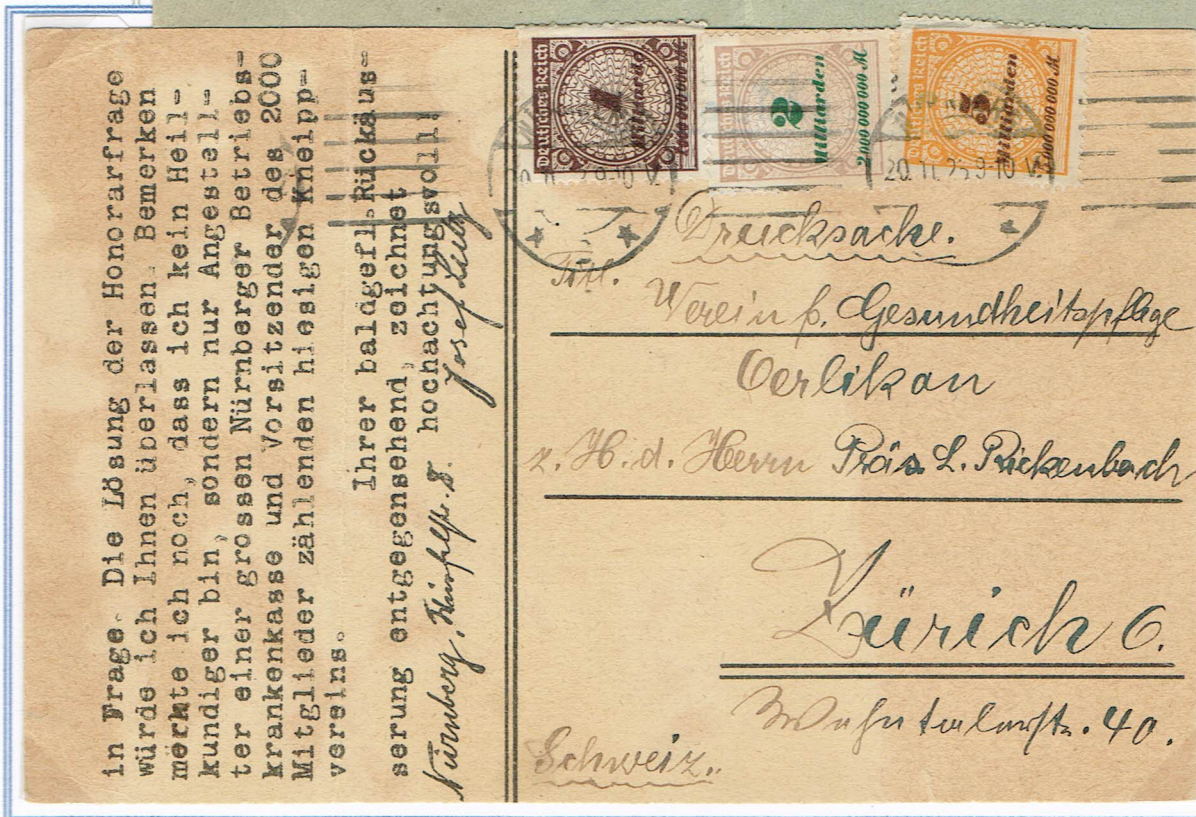 in Frage. Die Lösung der Honorarfrage
würde ich Ihnen überlassen. Bemerken
merkte ich noch, dass ich kein Heil-
kundiger bin, sondern nur Angestell-
ter einer grossen Nürnberger Betriebs-
krankenkasse und Vorsitzender des 2000
Mitglieder zählenden hiesigen Kneipp-
vereins.
Ihrer baldgefl. Rückäus-
serung entgegensehend, zeichnet
hochachtungsvoll!
Nürnberg,
Josef
Deutsches Reich
1
Milliarde
Deutsches Reich
2
Milliarden
2 000 000 000 M
Deutsches Reich
5
Milliarden
5 000 000 000 M
20.11.23.9-10 V.
Drucksache.
Titl.
Verein f. Gesundheitspflege
Oerlikon
z. H. d. Herrn Präs. L. Rickenbach
Zürich 6.
Wehntalerstr. 40.
Schweiz.